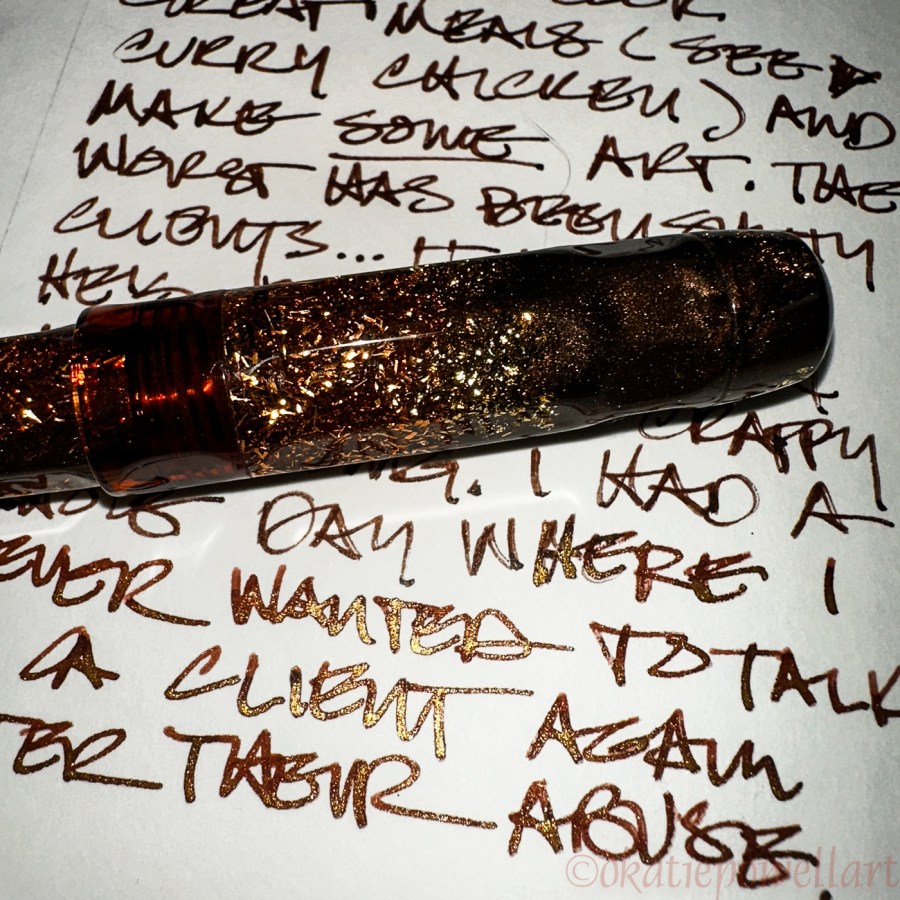 GREAT
MEALS (SEE
CURRY CHICKEN) AND
MAKE SOME ART. THE
WORST HAS BEEN
CLIENTS...
CRAPPY
. I HAD A
WHOLE DAY WHERE I
EVER WANTED TO TALK
A CLIENT AGAIN
TER THEIR ABUSE.
©okatiepowellart